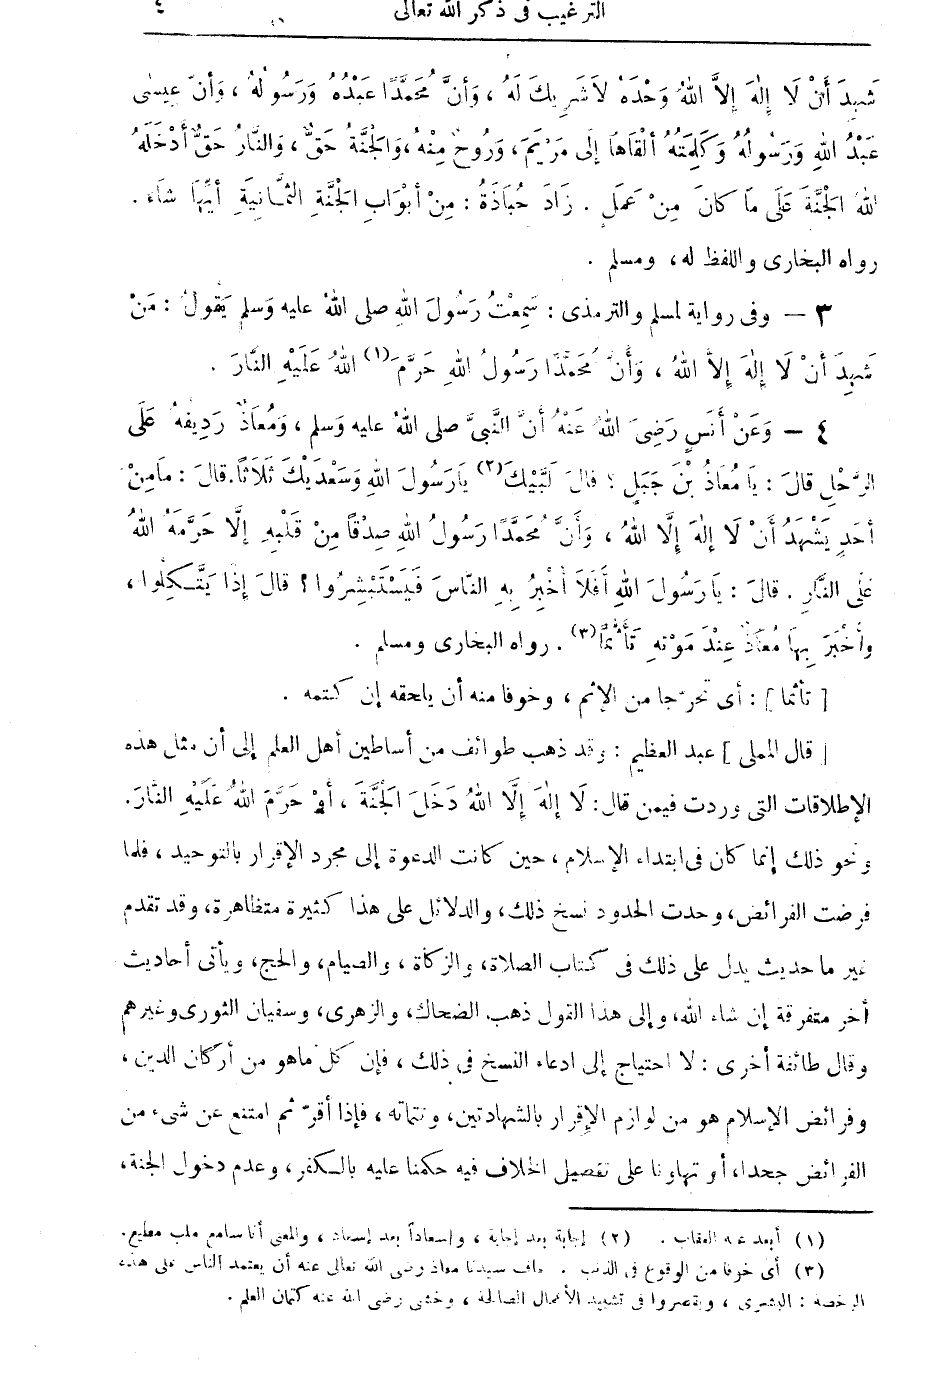 الترغيب فى ذكر الله تعالى
شَهِدَ أَنْ لَا إِلٰهَ إِلاَّ اللهُ وَحْدَهُ لاَشَرِيكَ لَهُ ، وَأنَّ مُحَمَّدًا عَبْدُهُ وَرَسُولُهُ ، وَأنَّ عِيسٰى
عَبْدُ اللهِ وَرَسُولُهُ وَكَلِمَتُهُ ألْقَاهَا إلَى مَرْيَمَ ، وَرُوحٌ مِنْهُ ، وَالْجَنَّةُ حَقٌّ ، وَالنَّارُ حَقٌّ أدْخَلَهُ
اللهُ الْجَنَّةَ عَلَى مَا كَانَ مِنْ عَمَلٍ . زَادَ جُنَادَةُ : مِنْ أبْوَابِ الْجَنَّةِ الثَّمَانِيَةِ أيِّهَا شَاءَ .
رواه البخارى واللفظ له ، ومسلم .
٣ — وفى رواية لمسلم والترمذى : سَمِعْتُ رَسُولَ اللهِ صلى اللهُ عليه وَسلم يَقُولُ : مَنْ
شَهِدَ أَنْ لَا إِلٰهَ إِلاَّ اللهُ ، وَأَنَّ مُحَمَّدًا رَسُولُ اللهِ حَرَّمَ (١) اللهُ عَلَيْهِ النَّارَ .
٤ — وَعَنْ أَنَسٍ رَضِىَ اللهُ عَنْهُ أنَّ النَّبِىَّ صلى اللهُ عليه وَسلم ، وَمُعَاذٌ رَدِيفهُ عَلَى
الرَّحْلِ قَالَ : يَا مُعَاذُ بْنَ جَبَلٍ ؟ قالَ لَبَّيْكَ (٢) يَارَسُولَ اللهِ وَسَعْدَيْكَ ثَلَاثاً. قالَ : مَامِنْ
أحَدٍ يَشْهَدُ أنْ لَا إِلٰهَ إِلَّا اللهُ ، وَأَنَّ مُحَمَّدًا رَسُولُ اللهِ صِدْقاً مِنْ قَلْبِهِ إِلَّا حَرَّمَهُ اللهُ
عَلَى النَّارِ . قالَ : يَارَسُولَ اللهِ أَفَلاَ أُخْبِرُ بِهِ النَّاسَ فَيَسْتَبْشِرُوا ؟ قالَ إذًا يَتَّكِلُوا ،
وأَخْبَرَ بِهَا مُعَاذٌ عِنْدَ مَوْتِهِ تَأَثُّمًا (٣) . رواه البخارى ومسلم .
[ تأثما ] : أى تحرّجا من الإثم ، وخوفا منه أن يلحقه إن كتمه .
[ قال المملى ] عبد العظيم : وقد ذهب طوائف من أساطين أهل العلم إلى أن مثل هذه
الإطلاقات التى وردت فيمن قال : لَا إِلٰهَ إِلَّا اللهُ دَخَلَ الْجَنَّةَ ، أوْ حَرَّمَ اللهُ عَلَيْهِ النارَ.
ونحو ذلك إنما كان فى ابتداء الإسلام ، حين كانت الدعوة إلى مجرد الإقرار بالتوحيد ، فلما
فرضت الفرائض ، وحدت الحدود نسخ ذلك ، والدلائل على هذا كثيرة متظاهرة ، وقد تقدم
غير ما حديث يدل على ذلك فى كتاب الصلاة ، والزكاة ، والصيام ، والحج ، ويأتى أحاديث
أخر متفرقة إن شاء الله ، وإلى هذا القول ذهب الضحاك ، والزهرى ، وسفيان الثورى وغيرهم
وقال طائفة أخرى : لا احتياج إلى ادعاء النسخ فى ذلك ، فإن كل ماهو من أركان الدين ،
وفرائض الإسلام هو من لوازم الإقرار بالشهادتين ، وتتماته ، فإذا أقرّ ثم امتنع عن شىء من
الفرائض جحدا ، أو تهاونا على تفصيل الخلاف فيه حكمنا عليه بالكفر ، وعدم دخول الجنة ،
(١) أبعد عنه العقاب . (٢) إجابة بعد إجابة ، وإسعاداً بعد إسعاد ، والمعنى أنا سامع ملب مطيع.
(٣) أى خوفا من الوقوع فى الذنب . خاف سيدنا معاذ رضى الله تعالى عنه أن يعتمد الناس على هذه
الرخصة : البشرى ، ويقصروا فى تشييد الأعمال الصالحة ، وخشى رضى الله عنه كتمان العلم .